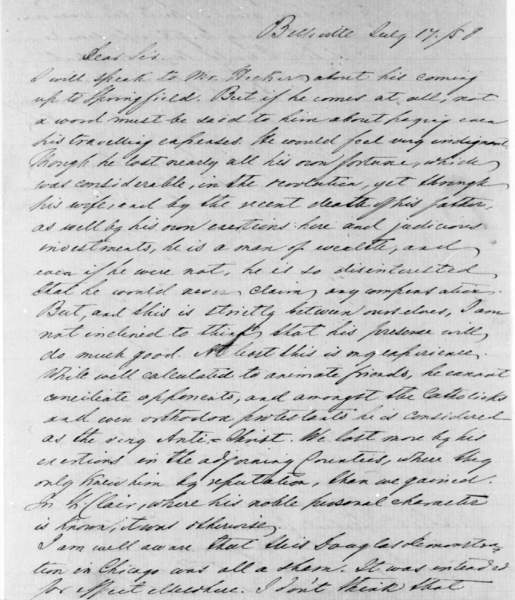 Belleville July 17./58
Dear Sir.
I will speak to Mr. Hecker, about his coming
up to Springfield. But if he comes at all, not
a word must be said to him about paying even
his travelling expenses. He would feel very indignant.
Though he lost nearly all his own fortune, which
was considerable, in the revolution, yet through
his wife, and by the recent death of his father,
as well by his own exertions here and judicious
investments, he is a man of wealth, and
even if he were not, he is so disinterested
that he would never claim any compensation.
But, and this is strictly between ourselves, I am
not inclined to think, that his presence will
do much good. At least this is my experience.
While well calculated to animate friends, he cannot
conciliate opponents, and amongst the Catholicks
and even orthodox protestants he is considered
as the very Anti-Christ. We lost more by his
exertions in the adjoining Counties, where they
only knew him by reputation, than we gained.
In St Clair, where his noble personal character
is known, it was otherwise.
I am well aware that this Douglas demonstra-
tion in Chicago was all a sham. It was intended
for effect elsewhere. I don't think that